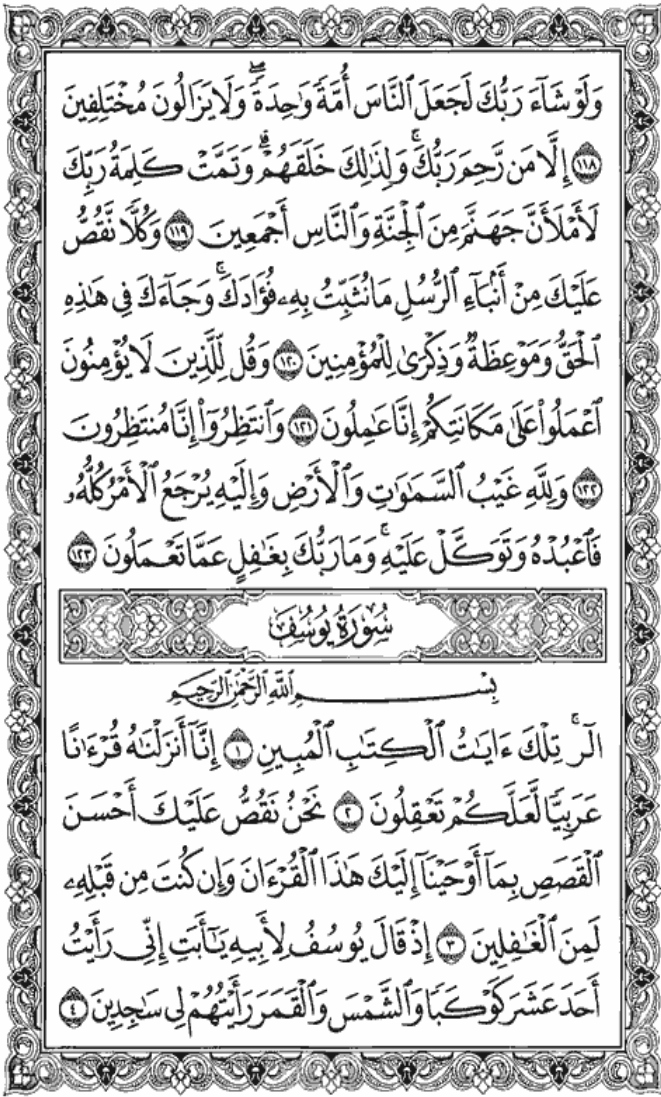 وَلَوۡ شَآءَ رَبُّكَ لَجَعَلَ ٱلنَّاسَ أُمَّةٗ وَٰحِدَةٗۖ وَلَا يَزَالُونَ مُخۡتَلِفِينَ
١١٨ إِلَّا مَن رَّحِمَ رَبُّكَۚ وَلِذَٰلِكَ خَلَقَهُمۡۗ وَتَمَّتۡ كَلِمَةُ رَبِّكَ
لَأَمۡلَأَنَّ جَهَنَّمَ مِنَ ٱلۡجِنَّةِ وَٱلنَّاسِ أَجۡمَعِينَ ١١٩ وَكُلّٗا نَّقُصُّ
عَلَيۡكَ مِنۡ أَنۢبَآءِ ٱلرُّسُلِ مَا نُثَبِّتُ بِهِۦ فُؤَادَكَۚ وَجَآءَكَ فِي هَٰذِهِ
ٱلۡحَقُّ وَمَوۡعِظَةٞ وَذِكۡرَىٰ لِلۡمُؤۡمِنِينَ ١٢٠ وَقُل لِّلَّذِينَ لَا يُؤۡمِنُونَ
ٱعۡمَلُواْ عَلَىٰ مَكَانَتِكُمۡ إِنَّا عَٰمِلُونَ ١٢١ وَٱنتَظِرُوٓاْ إِنَّا مُنتَظِرُونَ
١٢٢ وَلِلَّهِ غَيۡبُ ٱلسَّمَٰوَٰتِ وَٱلۡأَرۡضِ وَإِلَيۡهِ يُرۡجَعُ ٱلۡأَمۡرُ كُلُّهُۥ
فَٱعۡبُدۡهُ وَتَوَكَّلۡ عَلَيۡهِۚ وَمَا رَبُّكَ بِغَٰفِلٍ عَمَّا تَعۡمَلُونَ ١٢٣
سُورَةُ يُوسُفَ
بِسۡمِ ٱللَّهِ ٱلرَّحۡمَٰنِ ٱلرَّحِيمِ
الٓرۚ تِلۡكَ ءَايَٰتُ ٱلۡكِتَٰبِ ٱلۡمُبِينِ ١ إِنَّآ أَنزَلۡنَٰهُ قُرۡءَٰنًا
عَرَبِيّٗا لَّعَلَّكُمۡ تَعۡقِلُونَ ٢ نَحۡنُ نَقُصُّ عَلَيۡكَ أَحۡسَنَ
ٱلۡقَصَصِ بِمَآ أَوۡحَيۡنَآ إِلَيۡكَ هَٰذَا ٱلۡقُرۡءَانَ وَإِن كُنتَ مِن قَبۡلِهِۦ
لَمِنَ ٱلۡغَٰفِلِينَ ٣ إِذۡ قَالَ يُوسُفُ لِأَبِيهِ يَٰٓأَبَتِ إِنِّي رَأَيۡتُ
أَحَدَ عَشَرَ كَوۡكَبٗا وَٱلشَّمۡسَ وَٱلۡقَمَرَ رَأَيۡتُهُمۡ لِي سَٰجِدِينَ ٤